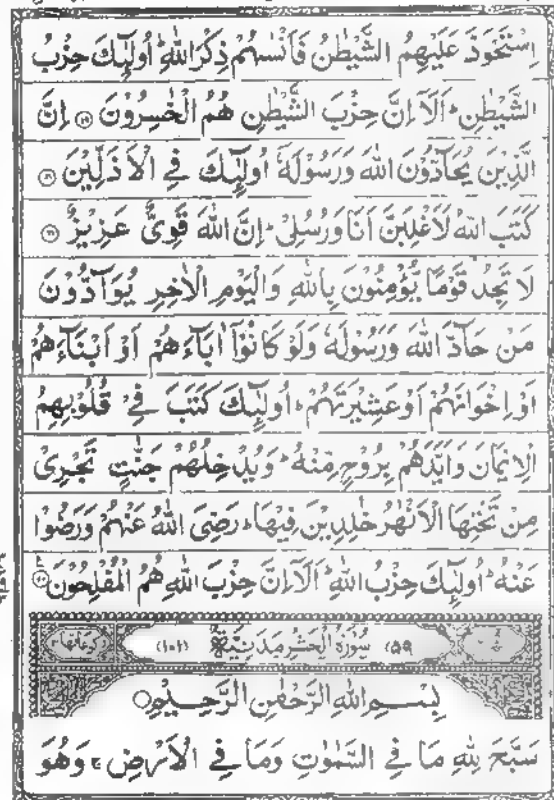 اِسْتَحْوَذَ عَلَيْهِمُ الشَّيْطٰنُ فَاَنْسٰىهُمْ ذِكْرَ اللّٰهِ ؕ اُولٰٓئِكَ حِزْبُ
الشَّيْطٰنِ ؕ اَلَاۤ اِنَّ حِزْبَ الشَّيْطٰنِ هُمُ الْخٰسِرُوْنَ ۝۱۹ اِنَّ
الَّذِيْنَ يُحَآدُّوْنَ اللّٰهَ وَرَسُوْلَهٗۤ اُولٰٓئِكَ فِى الْاَذَلِّيْنَ ۝۲۰
كَتَبَ اللّٰهُ لَاَغْلِبَنَّ اَنَا وَرُسُلِىْ ؕ اِنَّ اللّٰهَ قَوِىٌّ عَزِيْزٌ ۝۲۱
لَا تَجِدُ قَوْمًا يُّؤْمِنُوْنَ بِاللّٰهِ وَالْيَوْمِ الْاٰخِرِ يُوَآدُّوْنَ
مَنْ حَآدَّ اللّٰهَ وَرَسُوْلَهٗ وَلَوْ كَانُوْۤا اٰبَآءَهُمْ اَوْ اَبْنَآءَهُمْ
اَوْ اِخْوَانَهُمْ اَوْ عَشِيْرَتَهُمْ ؕ اُولٰٓئِكَ كَتَبَ فِىْ قُلُوْبِهِمُ
الْاِيْمَانَ وَاَيَّدَهُمْ بِرُوْحٍ مِّنْهُ ؕ وَيُدْخِلُهُمْ جَنّٰتٍ تَجْرِىْ
مِنْ تَحْتِهَا الْاَنْهٰرُ خٰلِدِيْنَ فِيْهَا ؕ رَضِىَ اللّٰهُ عَنْهُمْ وَرَضُوْا
عَنْهُ ؕ اُولٰٓئِكَ حِزْبُ اللّٰهِ ؕ اَلَاۤ اِنَّ حِزْبَ اللّٰهِ هُمُ الْمُفْلِحُوْنَ ۝۲۲
(۵۹) سُوْرَةُ الْحَشْرِ مَدَنِيَّةٌ (۱۰۱)
بِسْمِ اللّٰهِ الرَّحْمٰنِ الرَّحِيْمِ
سَبَّحَ لِلّٰهِ مَا فِى السَّمٰوٰتِ وَمَا فِى الْاَرْضِ ۚ وَهُوَ